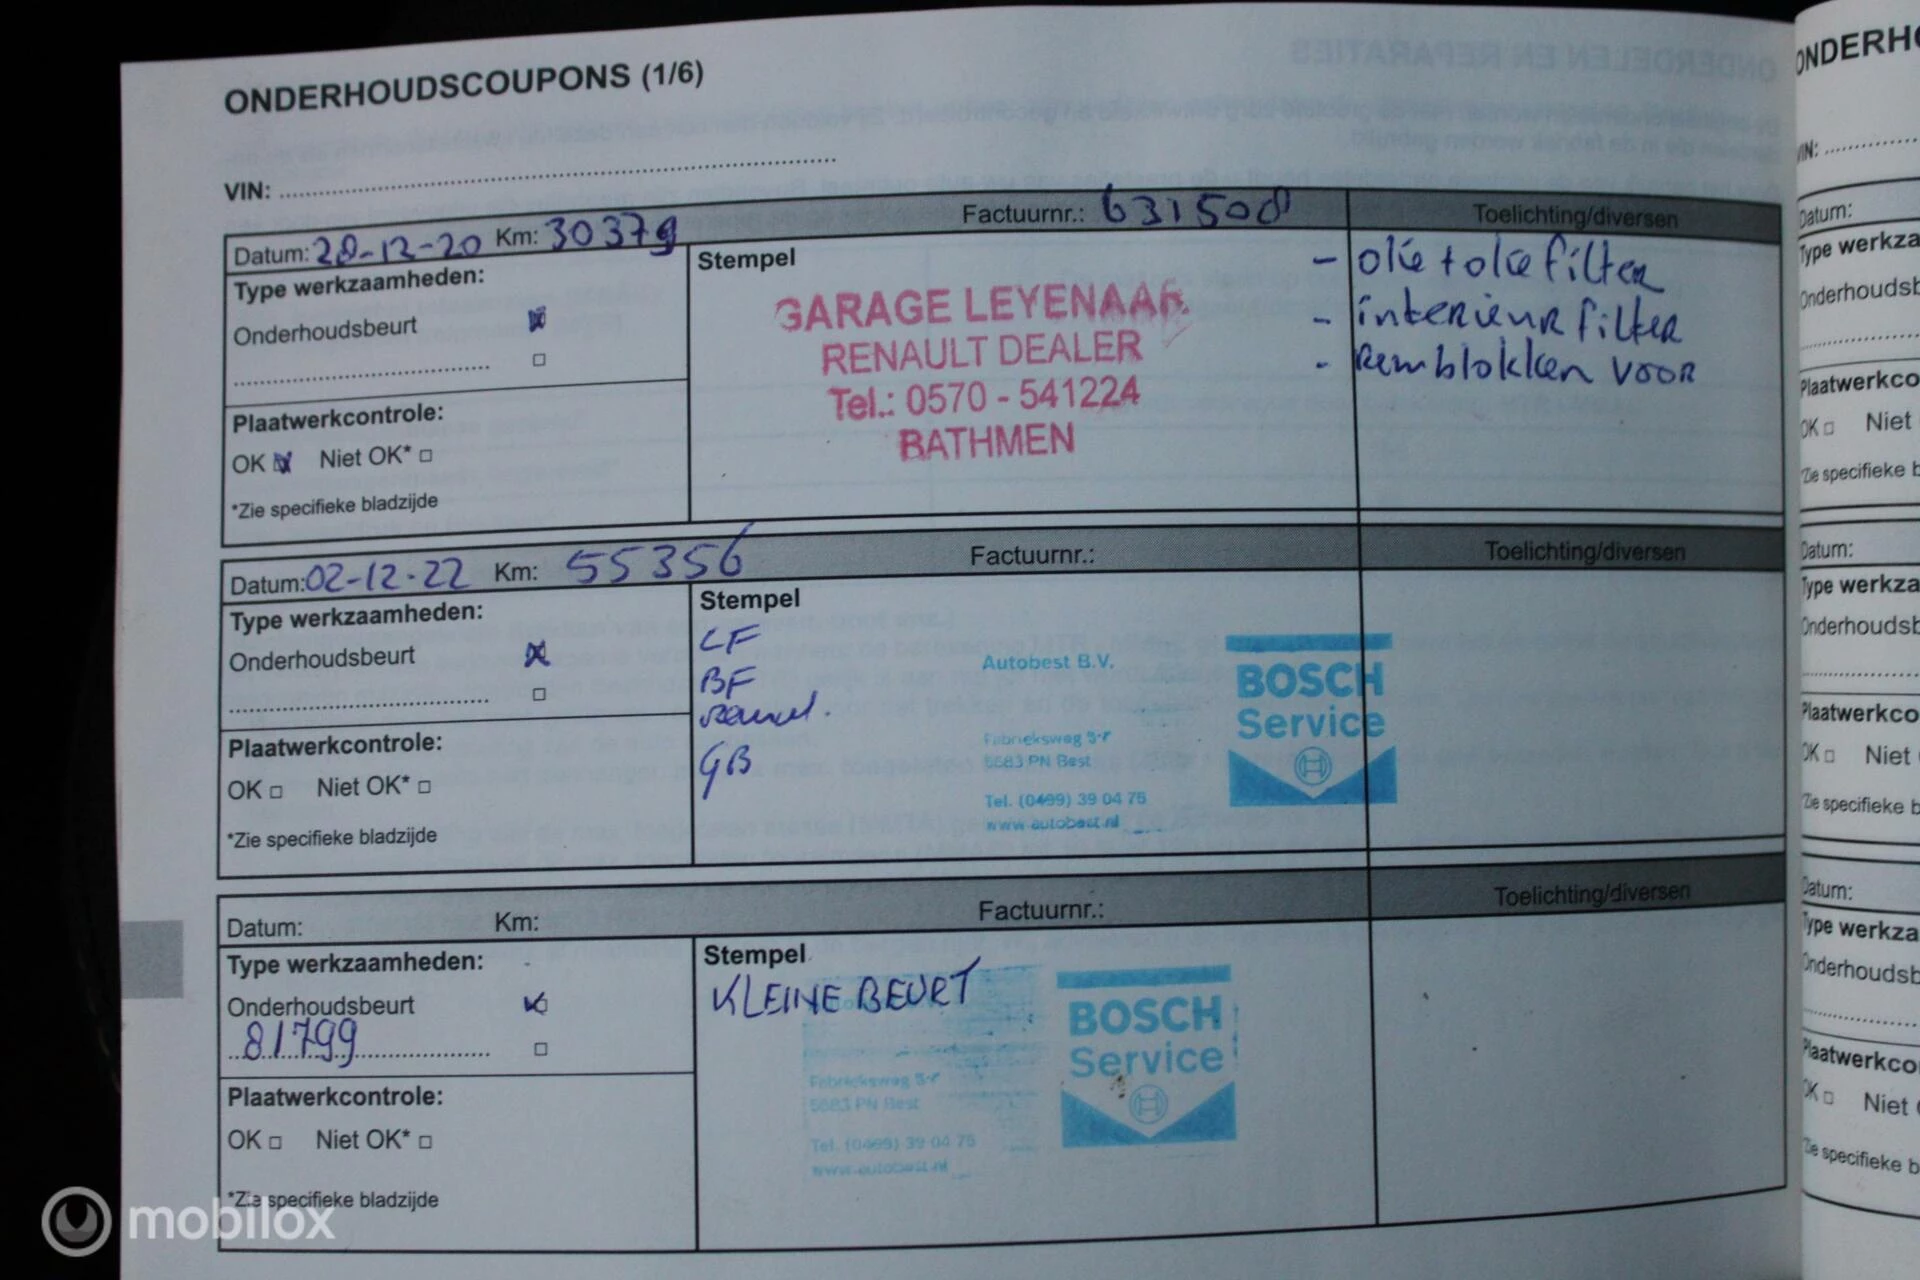 ONDERHOUDSCOUPONS (1/6)
ONDERDELEN EN REPARATIES
VIN:
Datum: 28-12-20 Km: 30379 Factuurnr.: 631508 Toelichting/diversen
Type werkzaamheden:
Onderhoudsbeurt
Plaatwerkcontrole:
OK Niet OK*
*Zie specifieke bladzijde
Stempel
GARAGE LEYENAAR
RENAULT DEALER
Tel.: 0570 - 541224
BATHMEN
- olie + oliefilter
- interieurfilter
- Remblokken voor
Datum: 02-12-22 Km: 55356 Factuurnr.: Toelichting/diversen
Type werkzaamheden:
Onderhoudsbeurt
Plaatwerkcontrole:
OK Niet OK*
*Zie specifieke bladzijde
Stempel
LF
BF
GB
Autobest B.V.
Fabrieksweg
5683 PN Best
Tel. (0499) 39 04 75
www.autobest.nl
BOSCH
Service
Datum: Km: Factuurnr.: Toelichting/diversen
Type werkzaamheden:
Onderhoudsbeurt
81799
Plaatwerkcontrole:
OK Niet OK*
*Zie specifieke bladzijde
Stempel
KLEINE BEURT
Fabrieksweg
5683 PN Best
Tel. (0499) 39 04 75
www.autobest.nl
BOSCH
Service
ONDERHO
VIN:
Datum:
Type werkza
Onderhoudsb
Plaatwerkco
OK Niet
*Zie specifieke b
Datum:
Type werkza
Onderhoudsb
Plaatwerkco
OK Niet
*Zie specifieke b
Datum:
Type werkza
Onderhoudsb
Plaatwerkco
OK Niet
*Zie specifieke b
mobilox